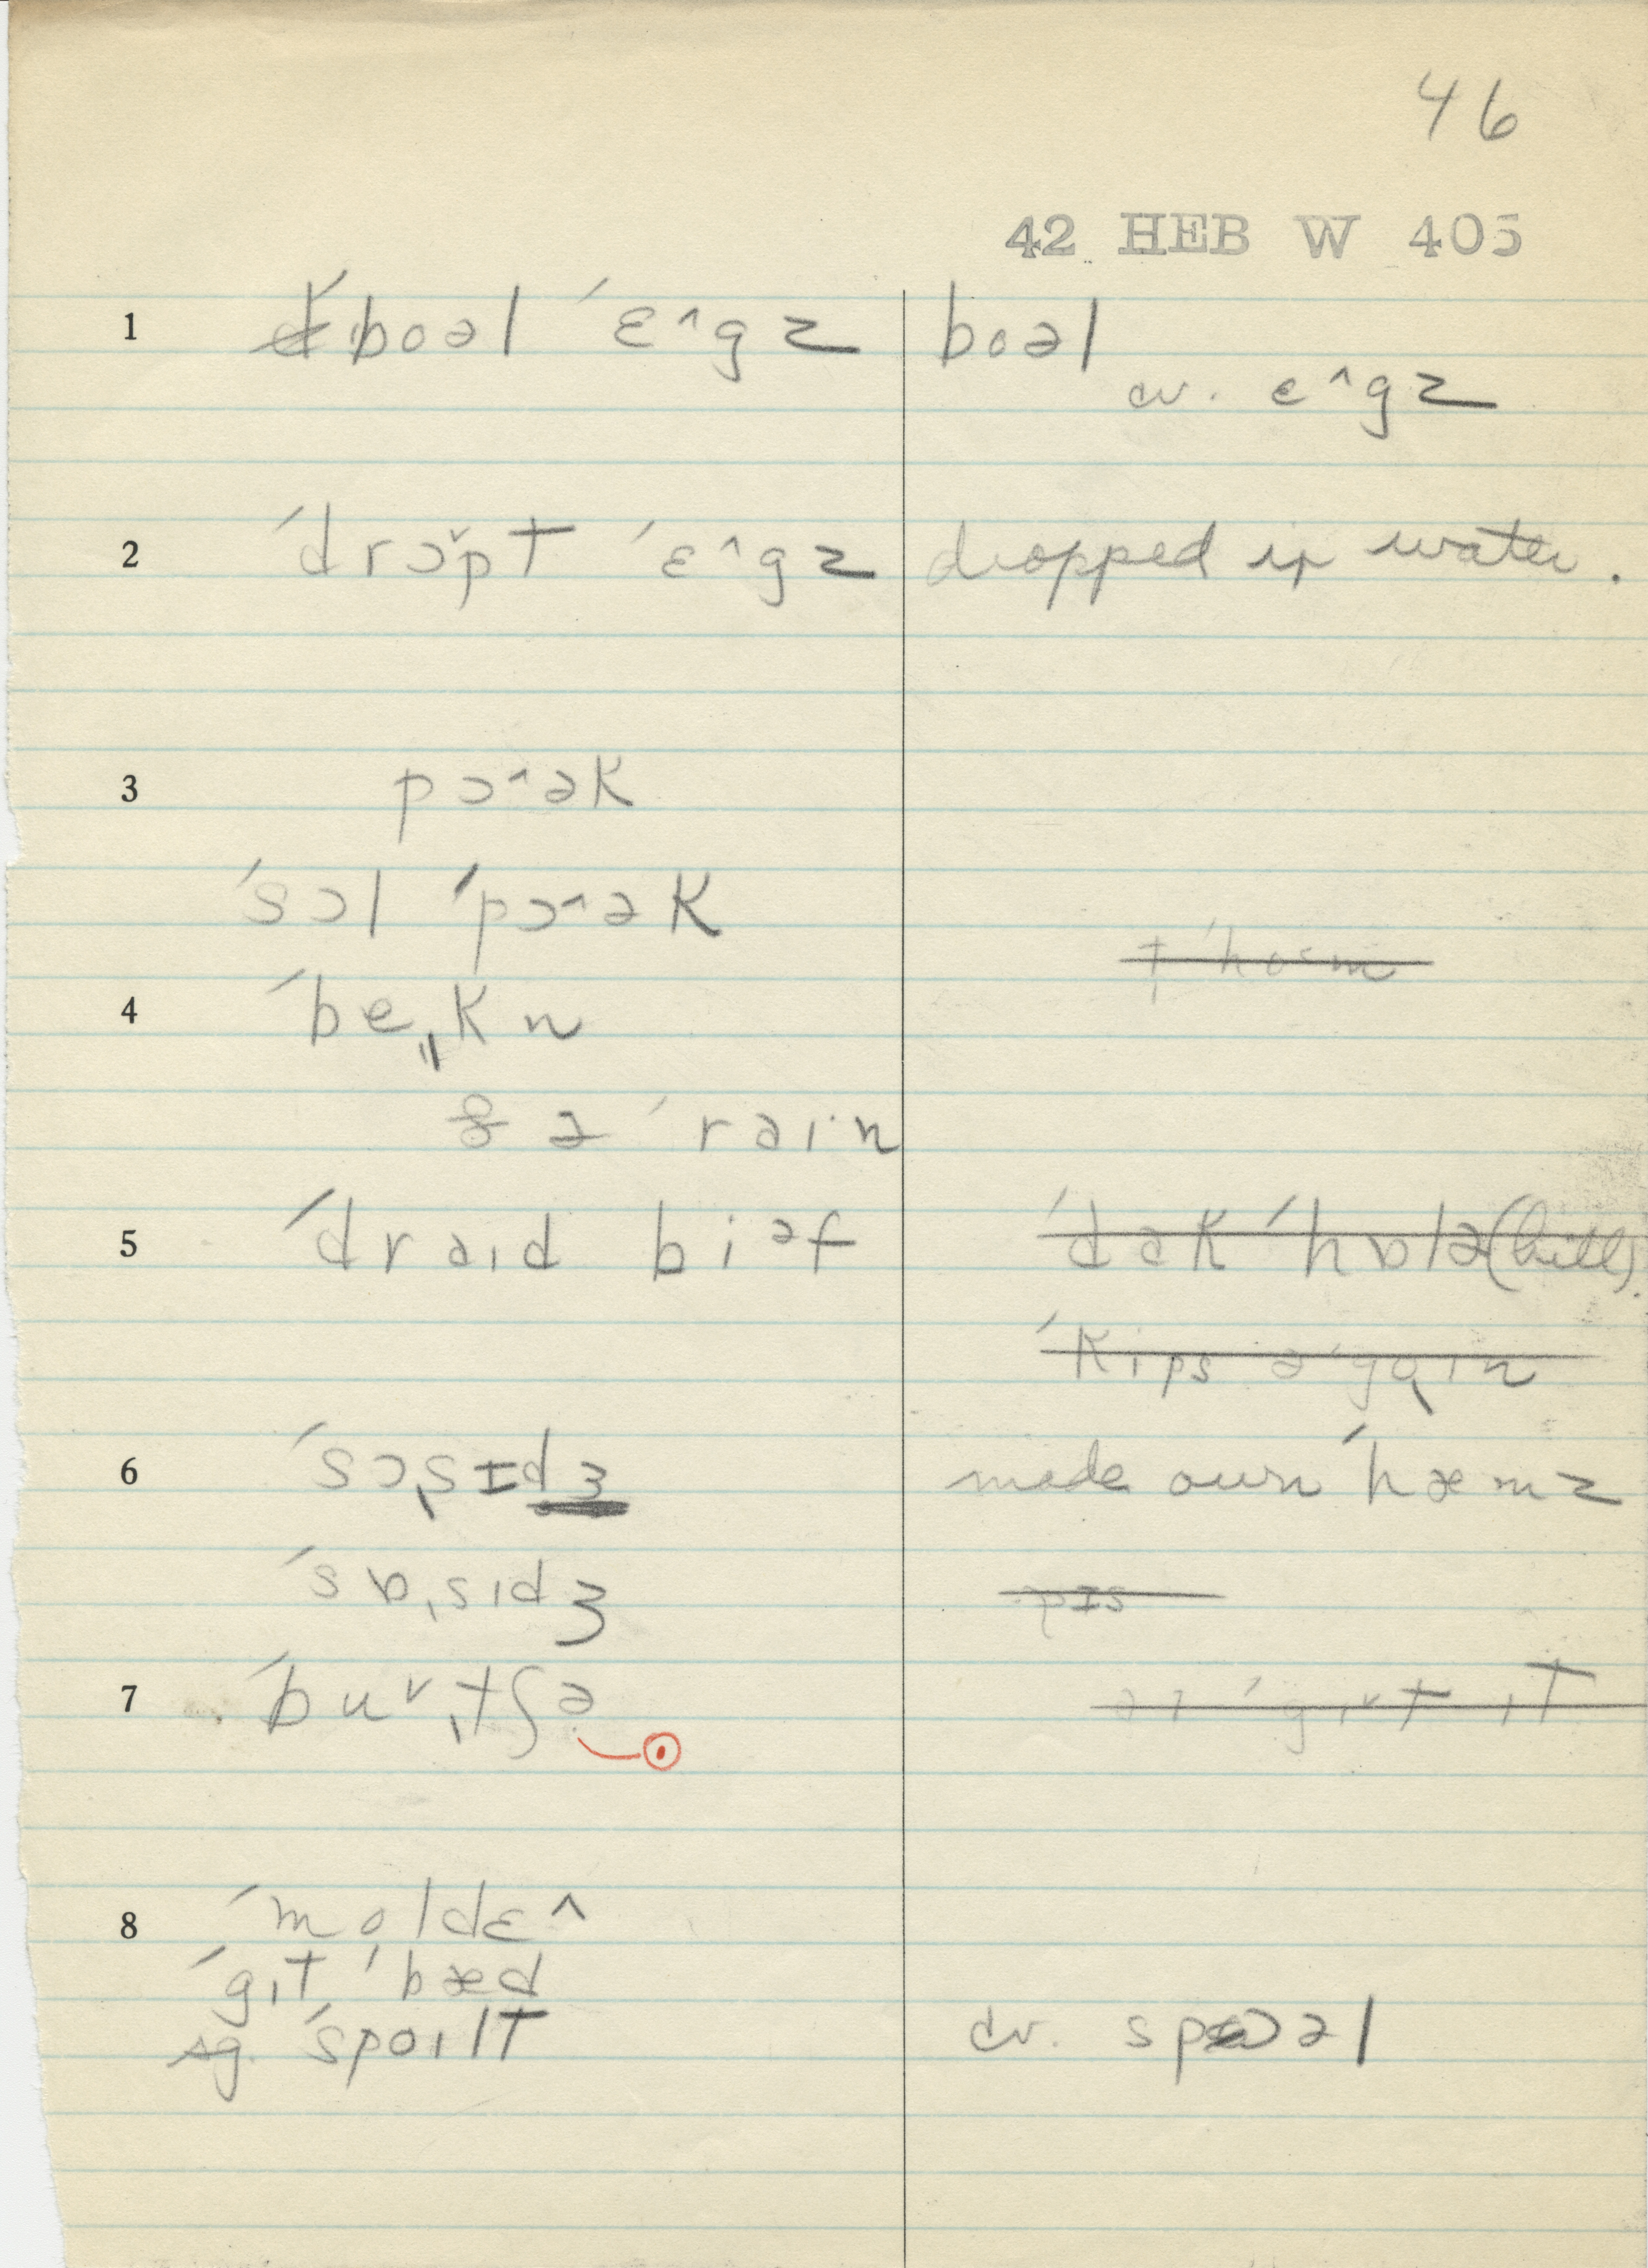 46
42 HEB W 405
1 ˈboəl ˈɛ^gz boəl
cv. ɛ^gz
2 ˈdrɔˇpt ˈɛ^gz dropped in water.
3 pɔ^ək
ˈsɔl ˈpɔ^ək
4 ˈbe͈kn
& ə ˈrəɪn
5 ˈdraɪd biəf ˈdək ˈhɒlə (hill).
ˈkips əˈgaɪn
6 ˈsɔsɪdʒ made own ˈhæmz
ˈsɒsɪdʒ pɪs
7 ˈbuˇtʃə
8 ˈmoldɛ^
ˈgɪt ˈbæd
sg. ˈspoɪlt cv. spɔəl